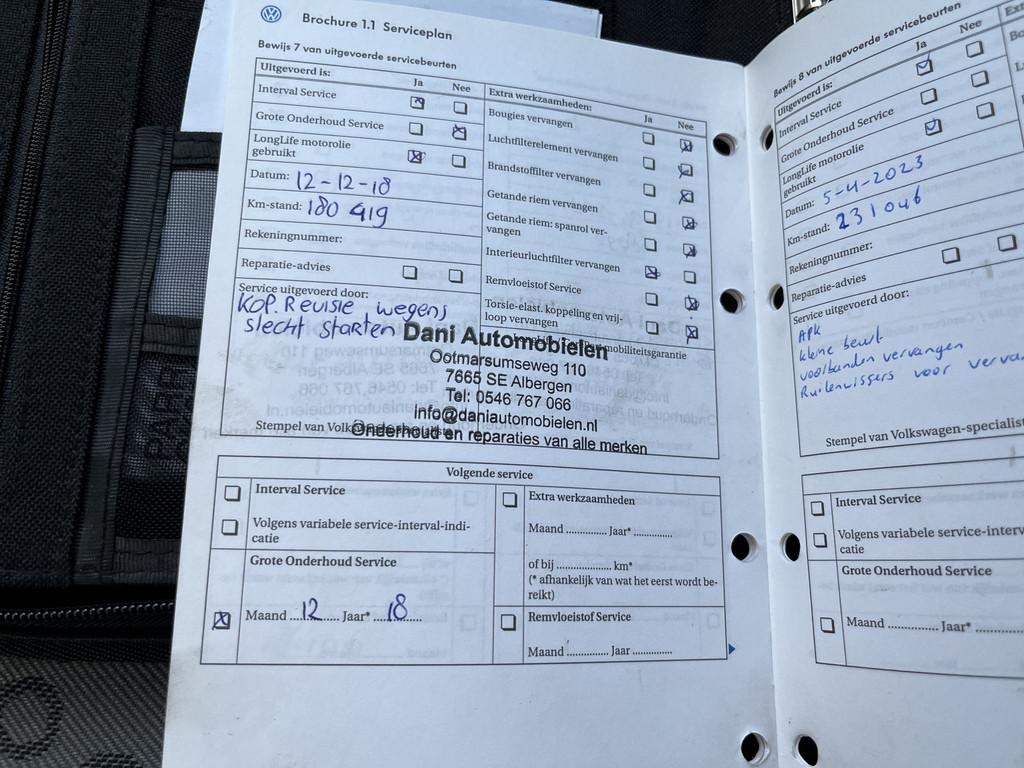 Brochure 1.1 Serviceplan
Bewijs 7 van uitgevoerde servicebeurten
Uitgevoerd is:
Ja Nee
Interval Service
Grote Onderhoud Service
LongLife motorolie
gebruikt
Datum: 12-12-18
Km-stand: 180 419
Rekeningnummer:
Reparatie-advies
Service uitgevoerd door:
KOP. Revisie wegens
slecht starten
Extra werkzaamheden:
Ja Nee
Bougies vervangen
Luchtfilterelement vervangen
Brandstoffilter vervangen
Getande riem vervangen
Getande riem: spanrol ver-
vangen
Interieurluchtfilter vervangen
Remvloeistof Service
Torsie-elast. koppeling en vrij-
loop vervangen
mobiliteitsgarantie
Dani Automobielen
Ootmarsumseweg 110
7665 SE Albergen
Tel: 0546 767 066
info@daniautomobielen.nl
Onderhoud en reparaties van alle merken
Stempel van
Volgende service
Interval Service
Volgens variabele service-interval-indi-
catie
Grote Onderhoud Service
Maand ...12...... Jaar* ...18...
Extra werkzaamheden
Maand ............ Jaar* ............
of bij ................. km*
(* afhankelijk van wat het eerst wordt be-
reikt)
Remvloeistof Service
Maand ............ Jaar ............
Bewijs 8 van uitgevoerde servicebeurten
Uitgevoerd is:
Ja Nee
Interval Service
Grote Onderhoud Service
LongLife motorolie
gebruikt
Datum: 5-4-2023
Km-stand: 231046
Rekeningnummer:
Reparatie-advies
Service uitgevoerd door:
APK
kleine beurt
voorbanden vervangen
Ruitenwissers voor
Stempel van Volkswagen-specialist
Interval Service
Volgens variabele service-interv
catie
Grote Onderhoud Service
Maand ............ Jaar* ............